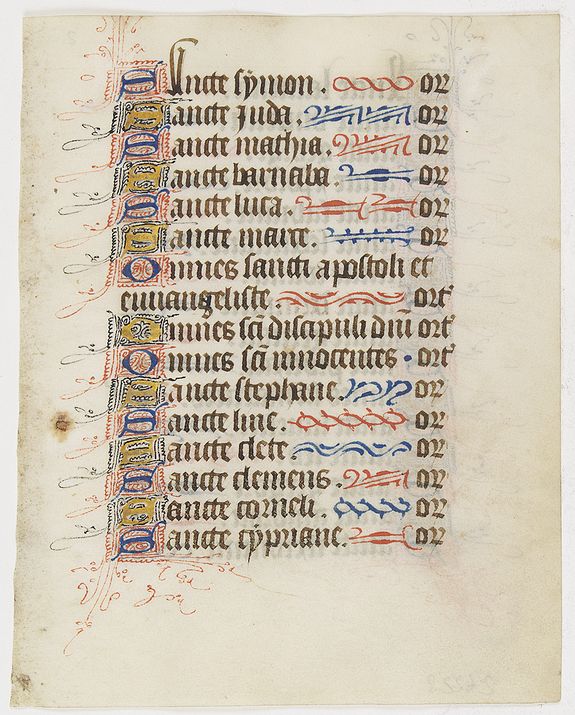 Sancte symon. or
Sancte juda. or
Sancte mathia. or
Sancte barnaba. or
Sancte luca. or
Sancte marce. or
Omnes sancti apostoli et
euuangeliste. ort
Omnes sci discipuli dni ort
Omnes sci innocentes. ort
Sancte stephane. or
Sancte line. or
Sancte clete. or
Sancte clemens. or
Sancte corneli. or
Sancte cypriane. or